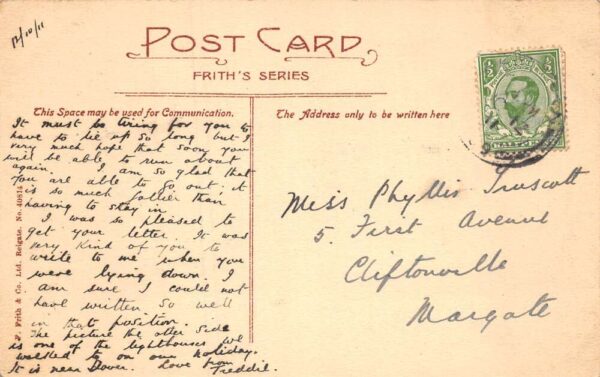 12/10/11
POST CARD
FRITH'S SERIES
This Space may be used for Communication.
The Address only to be written here
It must be tiring for you to
have to lie up so long but I
very much hope that soon you
will be able to run about
again. I am so glad that
you are able to go out: it
is so much jollier than
having to stay in.
I was so pleased to
get your letter. It was
very kind of you to
write to me when you
were lying down. I
am sure I could not
have written so well
in that position.
The picture the other side
is one of the lighthouses we
walked to on our holiday.
It is near Dover. Love from
Freddie.
Miss Phyllis Truscott
5. First Avenue
Cliftonville
Margate
F. Frith & Co. Ltd. Reigate. No. 40814